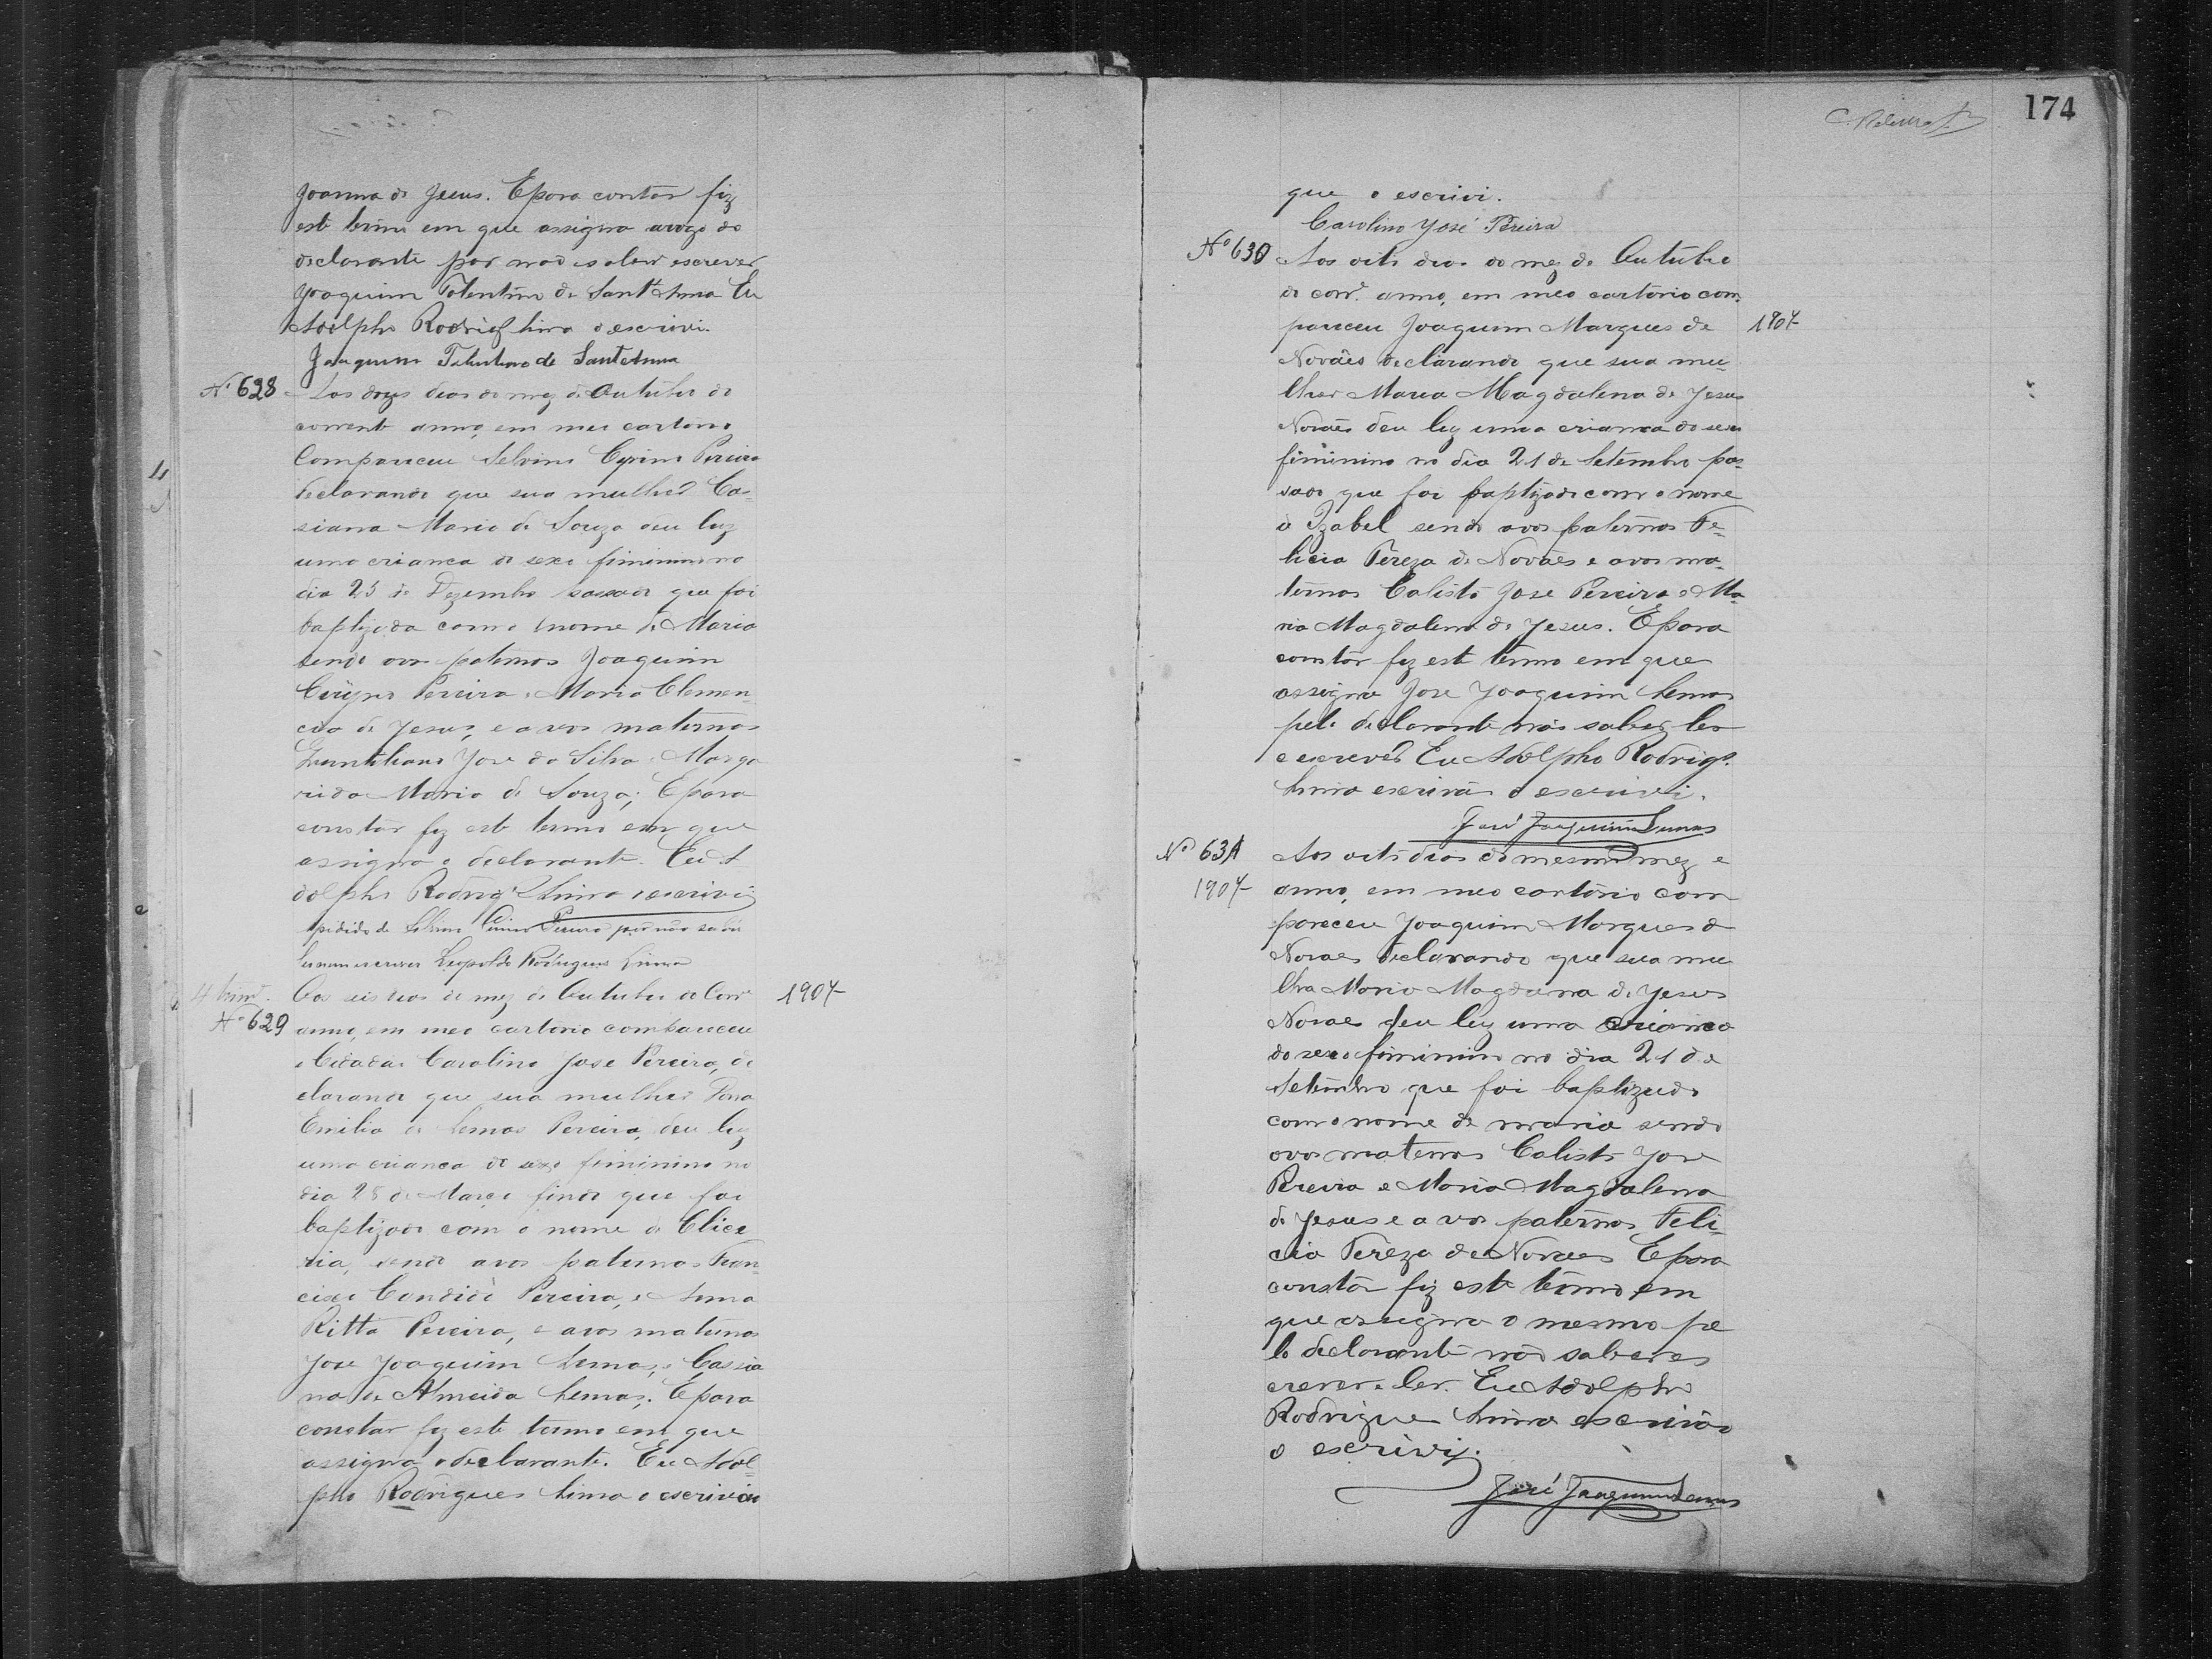 Joanna de Jesus. E para constar fiz
este termo em que assigna arogo do
declarante por não saber escrever
Joaquim Tolentino de Sant'Anna Eu
Adolpho Rodrigs Lima o escrivi.
Joaquim Tolentino de Sant'Anna
Nº 628 Aos dous dias do mez de Outubro do
corrente anno, em meu cartorio
Compareceu Selvino Pereira
declarando que sua mulher Cas-
siana Maria de Souza deu luz
uma crianca do sexo fiminino no
dia 25 de Dezembro passado que foi
baptizada com o nome de Maria
sendo avos paternos Joaquim
Pereira e Maria Clemen-
cia de Jesus, e avos maternos
José da Silva e Marga
rida Maria de Souza; E para
constar fiz este termo em que
assigna o declarante. Eu A
dolpho Rodrigs Lima o escrivi
pidido de Pereira por não saber
ler nem escrever Leopoldo Rodrigues Lima
4 trimo.
Nº 629 Aos seis dias do mez de Outubro do Corre 1904
anno, em meu cartorio compareceu
o Cidadão Carolino Jose Pereira, de
clarando que sua mulher Dona
Emilia de Lemos Pereira, deu luz
uma crianca do sexo fiminino no
dia 28 de Março findo que foi
baptizado com o nome de Clice
ria, sendo avos paternos Fran-
cisco Candido Pereira, e Anna
Ritta Pereira, e avos maternos
Jose Joaquim Lemos, e Cassia
na de Almeida Lemos; E para
constar fiz este termo em que
assigna o declarante. Eu Adol-
pho Rodrigues Lima o escrivão
174
que o escrivi.
Carolino José Pereira
Nº 630 Aos oito dias do mez de Outubro
do corre. anno, em meo cartorio com
pareceu Joaquim Marques de 1904
Novães declarando que sua mu-
lher Maria Magdalena de Jesus
Novães deu luz uma crianca do sexo
fiminino no dia 21 de Setembro pas-
sado que foi baptizado com o nome
de Izabel sendo avos paternos Fe-
licia Tereza de Novães e avos ma-
ternos Calisto Jose Pereira e Ma-
ria Magdalena de Jesus. E para
constar fiz este termo em que
assigna Jose Joaquim Lemos
pelo declarante não saber ler
e escrever Eu Adolpho Rodrigs.
Lima escrivão o escrivi.
José Joaquim Lemos
Nº 631 Aos oito dias do mesmo mez e
1904 anno, em meo cartório com
pareceu Joaquim Marques de
Novaes declarando que sua mu
lhra Maria Magdalena de Jesus
Novaes deu luz uma crianca
do sexo fiminino no dia 21 de
Setembro que foi baptizado
com o nome de maria sendo
avos maternos Calisto Jose
Pereira e Maria Magdalena
de Jesus e avos paternos Feli-
cia Tereza de Novaes E para
constar fiz este termo em
que assigna o mesmo pe
lo declarante não saber es
crever e ler. Eu Adolpho
Rodrigues Lima escrivão
o escrivi.
José Joaquim Lemos